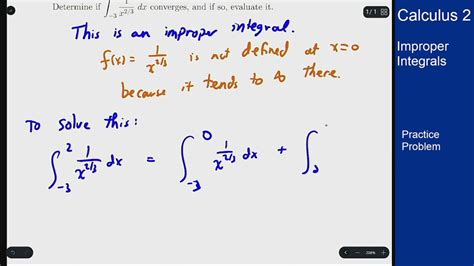 Determine if ∫_{-3} 1/x^{2/3} dx converges, and if so, evaluate it.
1 / 1
Calculus 2
This is an improper integral.
Improper
Integrals
f(x) = 1/x^{2/3} is not defined at x=0
because it tends to ∞ there.
To solve this:
Practice
Problem
∫_{-3}^{2} 1/x^{2/3} dx = ∫_{-3}^{0} 1/x^{2/3} dx + ∫